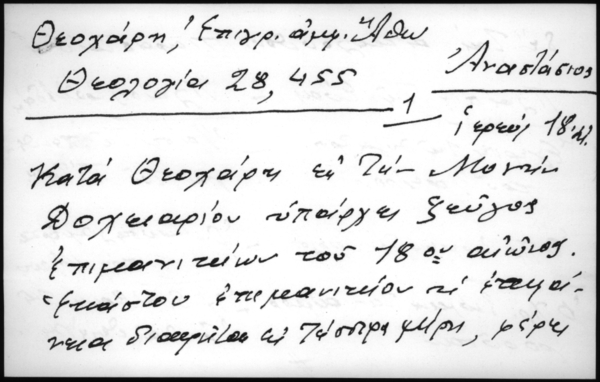 Θεοχάρη, Ἐπιγρ. ἀμφ. Ἄθω
Θεολογία 28, 455
Ἀναστάσιος
1
ἱερεύς 18 αἰ.
Κατά Θεοχάρη εἰς τήν Μονήν
Δοχειαρίου ὑπάρχει ζεῦγος
ἐπιμανικίων τοῦ 18ου αἰῶνος.
Ἑκάστου ἐπιμανικίου ἡ ἐπιφά-
νεια διαιρεῖται εἰς τέσσερα μέρη, φέρει